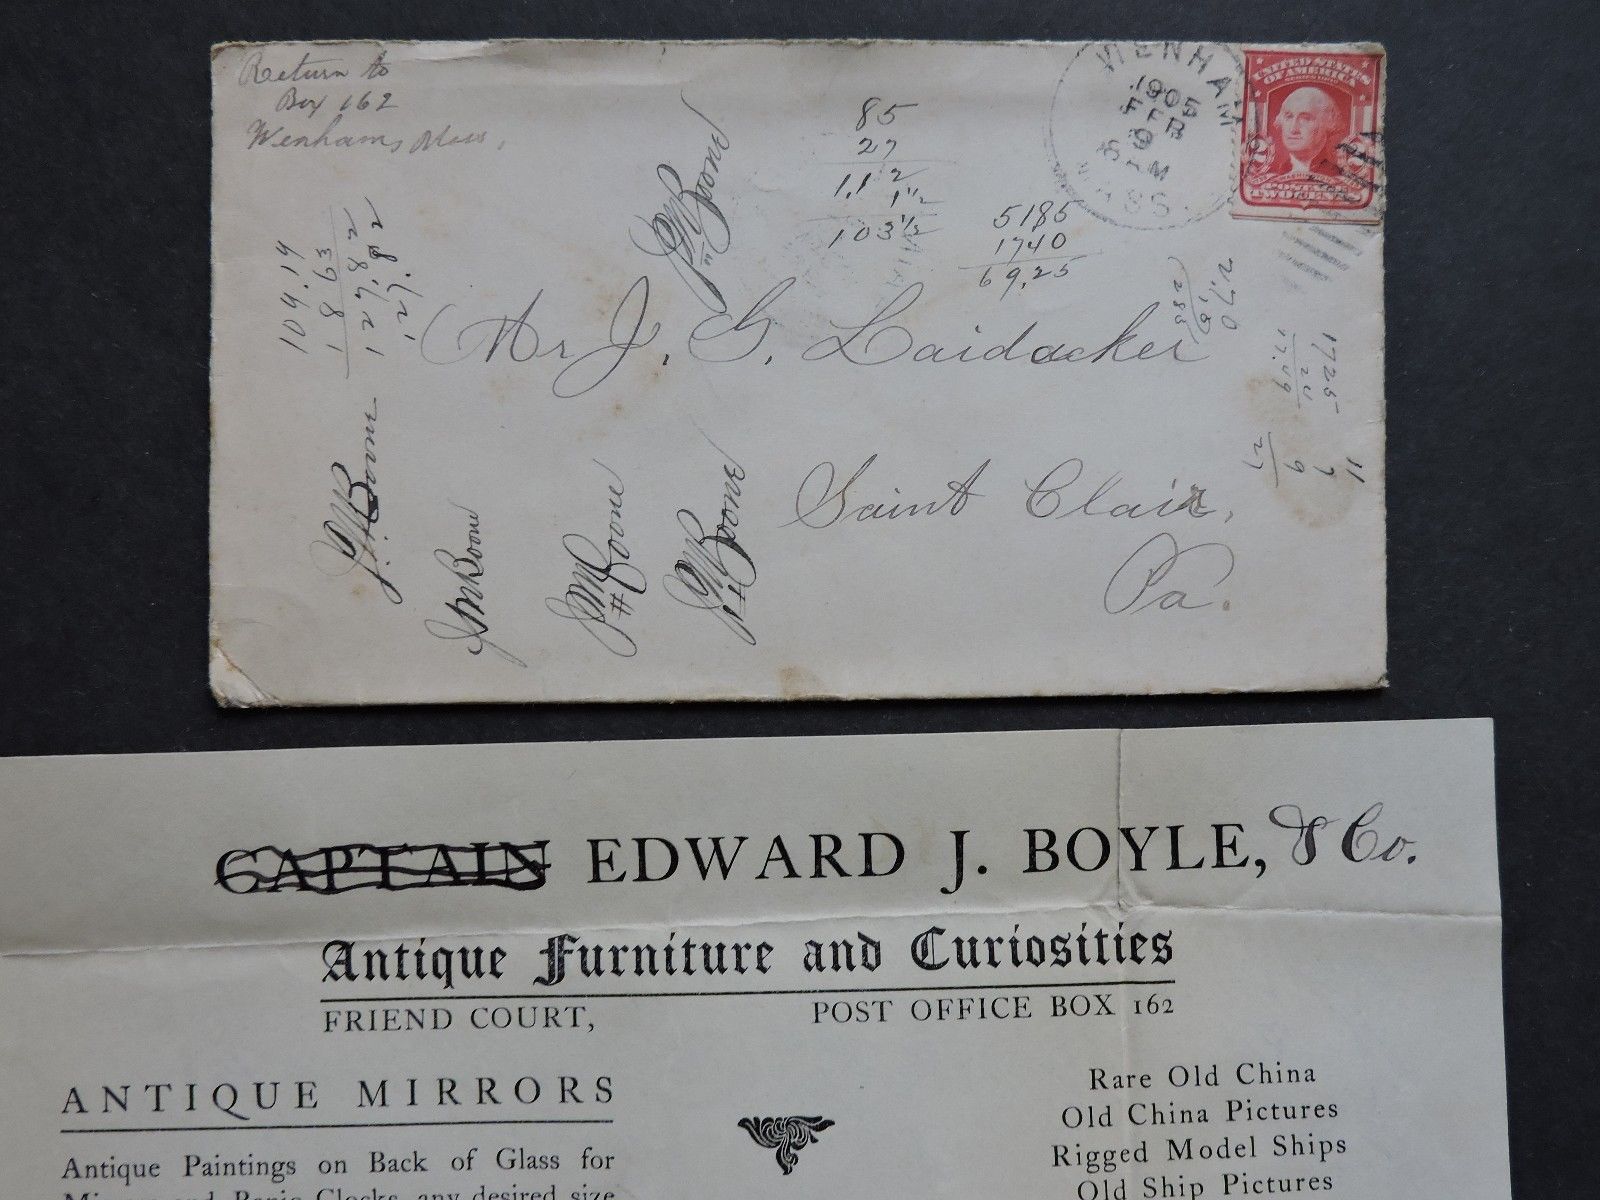 Return to
Box 162
Wenham, Mass.
WENHAM
1905
FEB
9
MASS
UNITED STATES
OF AMERICA
85
27
103 1/2
5185
1740
69,25
109.19
18 63
127.82
127.82
270
285
1725
24
17.49
11
7
9
27
J. M. Boone
Mr J. G. Laidacker
Saint Clair,
Pa.
J. M. Boone
J M Boone
J M Boone
J M Boone
CAPTAIN EDWARD J. BOYLE, & Co.
Antique Furniture and Curiosities
FRIEND COURT, POST OFFICE BOX 162
ANTIQUE MIRRORS
Antique Paintings on Back of Glass for
Mirrors and Banjo Clocks, any desired size
Rare Old China
Old China Pictures
Rigged Model Ships
Old Ship Pictures